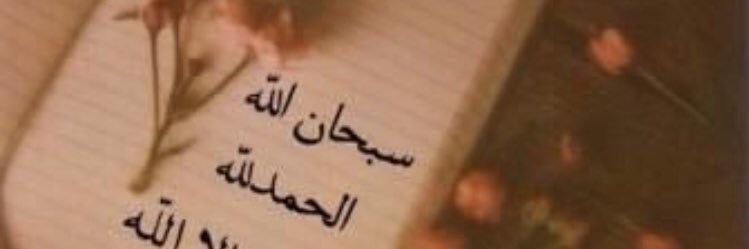 سبحان الله
الحمدلله
الله